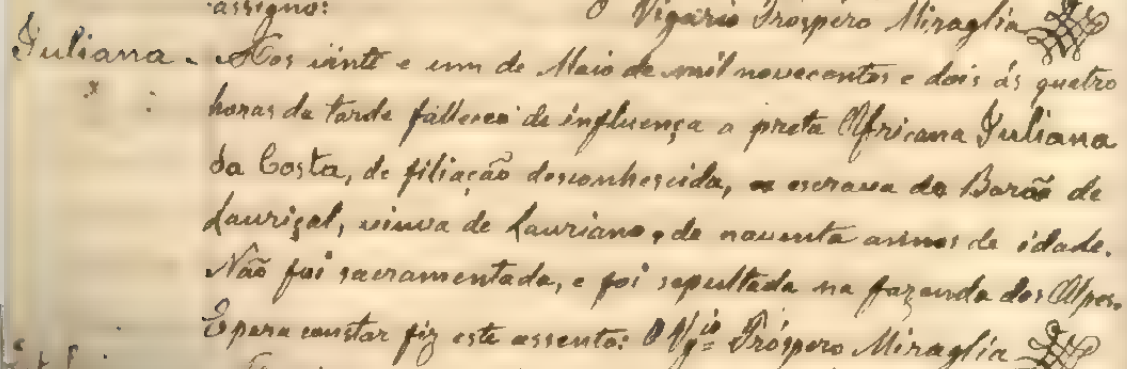 assigno: O Vigario Próspero Miraglia
Juliana - Aos vinte e um de Maio de mil novecentos e dois ás quatro
horas da tarde falleceo de influença a preta Africana Juliana
da Costa, de filiação desconhescida, escrava do Barão de
Louriçal, viuva de Lauriano, de noventa annos de idade.
Não foi sacramentada, e foi sepultada na fazenda dos Alpes.
E para constar fiz este assento: O Vgº Próspero Miraglia